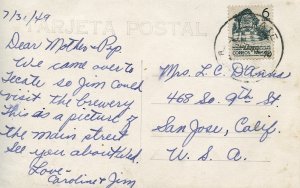 TARJETA POSTAL
7/31/49
Dear Mother & Pop
We came over to
Tecate so Jim could
visit the brewery
This as a picture of
the main street
See you about Wed.
Love -
Caroline & Jim
6
CORREOS
Mrs. L. C. D'Anna
468 So. 9th St.
San Jose, Calif.
U. S. A.